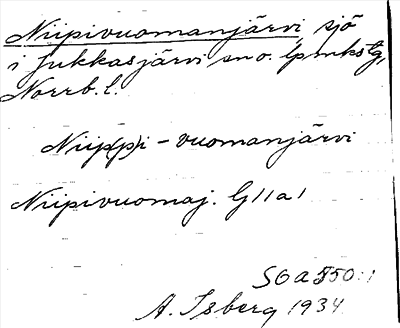 Niipivuomanjärvi, sjö
i Jukkasjärvi sn o. lpmkstg,
Norrb. l.
Niip(p)i - vuomanjärvi
Niipivuomaj. G11a1
SOA 550:1
A. Isberg 1934